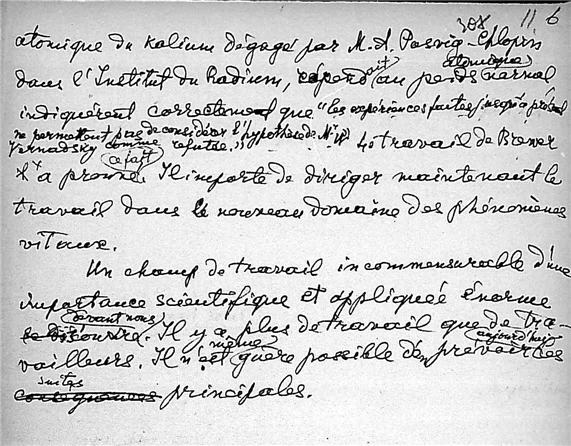 308 11 6
atomique du kalium dégagé par M. A. Pasvig-Chlopin
dans l'Institut du Radium, répondait au poids atomique normal
indiquèrent correctement que "les expériences faites jusqu'à présent
ne permettent pas de considérer l'hypothèse de M. W.
Vernadsky comme refutée." Le travail de Brewer
l'a prouvé. Il importe de diriger maintenant le
travail dans le nouveau domaine des phénomènes
vitaux.
Un champ de travail incommensurable d'une
importance scientifique et appliquée énorme
devant nous. Il y a plus de travail que de tra-
vailleurs. Il n'est même guère possible d'en prévoir aujourd'hui les
suites principales.